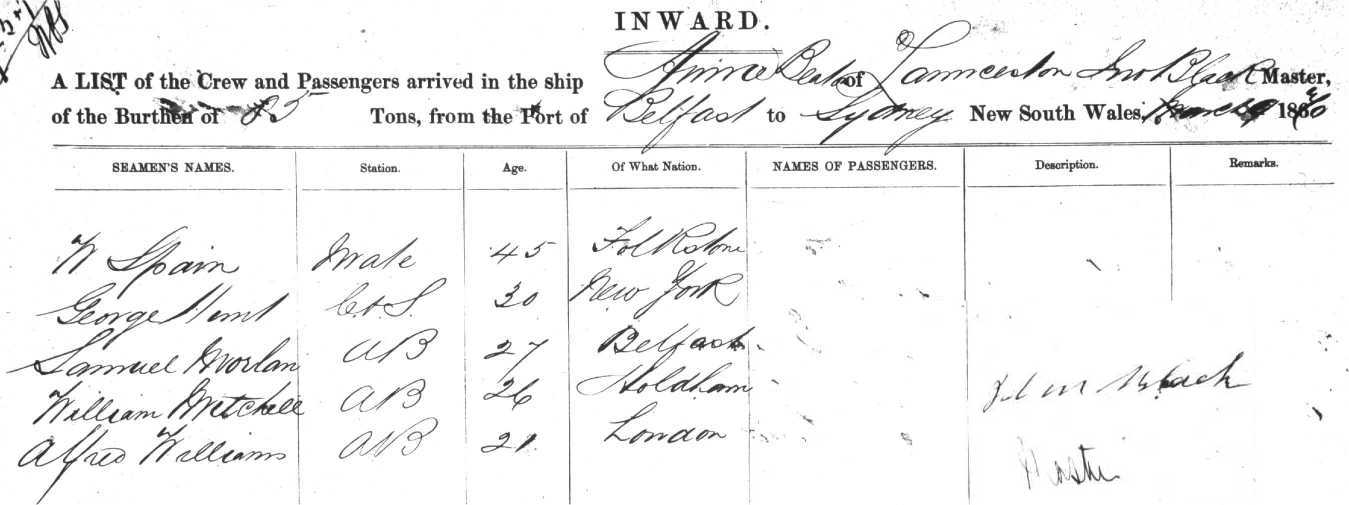 INWARD.
A LIST of the Crew and Passengers arrived in the ship of Launceston Jno Black Master,
of the Burthen of 85 Tons, from the Port of Belfast to Sydney New South Wales, 18
SEAMEN'S NAMES. Station. Age. Of What Nation. NAMES OF PASSENGERS. Description. Remarks.
W Spain Mate 45 Folkstone
George Hunt C & S. 30 New York
Samuel Morlan AB 27 Belfast
William Mitchell AB 26 Holdham
Alfred Williams AB 21 London
John Black
Master